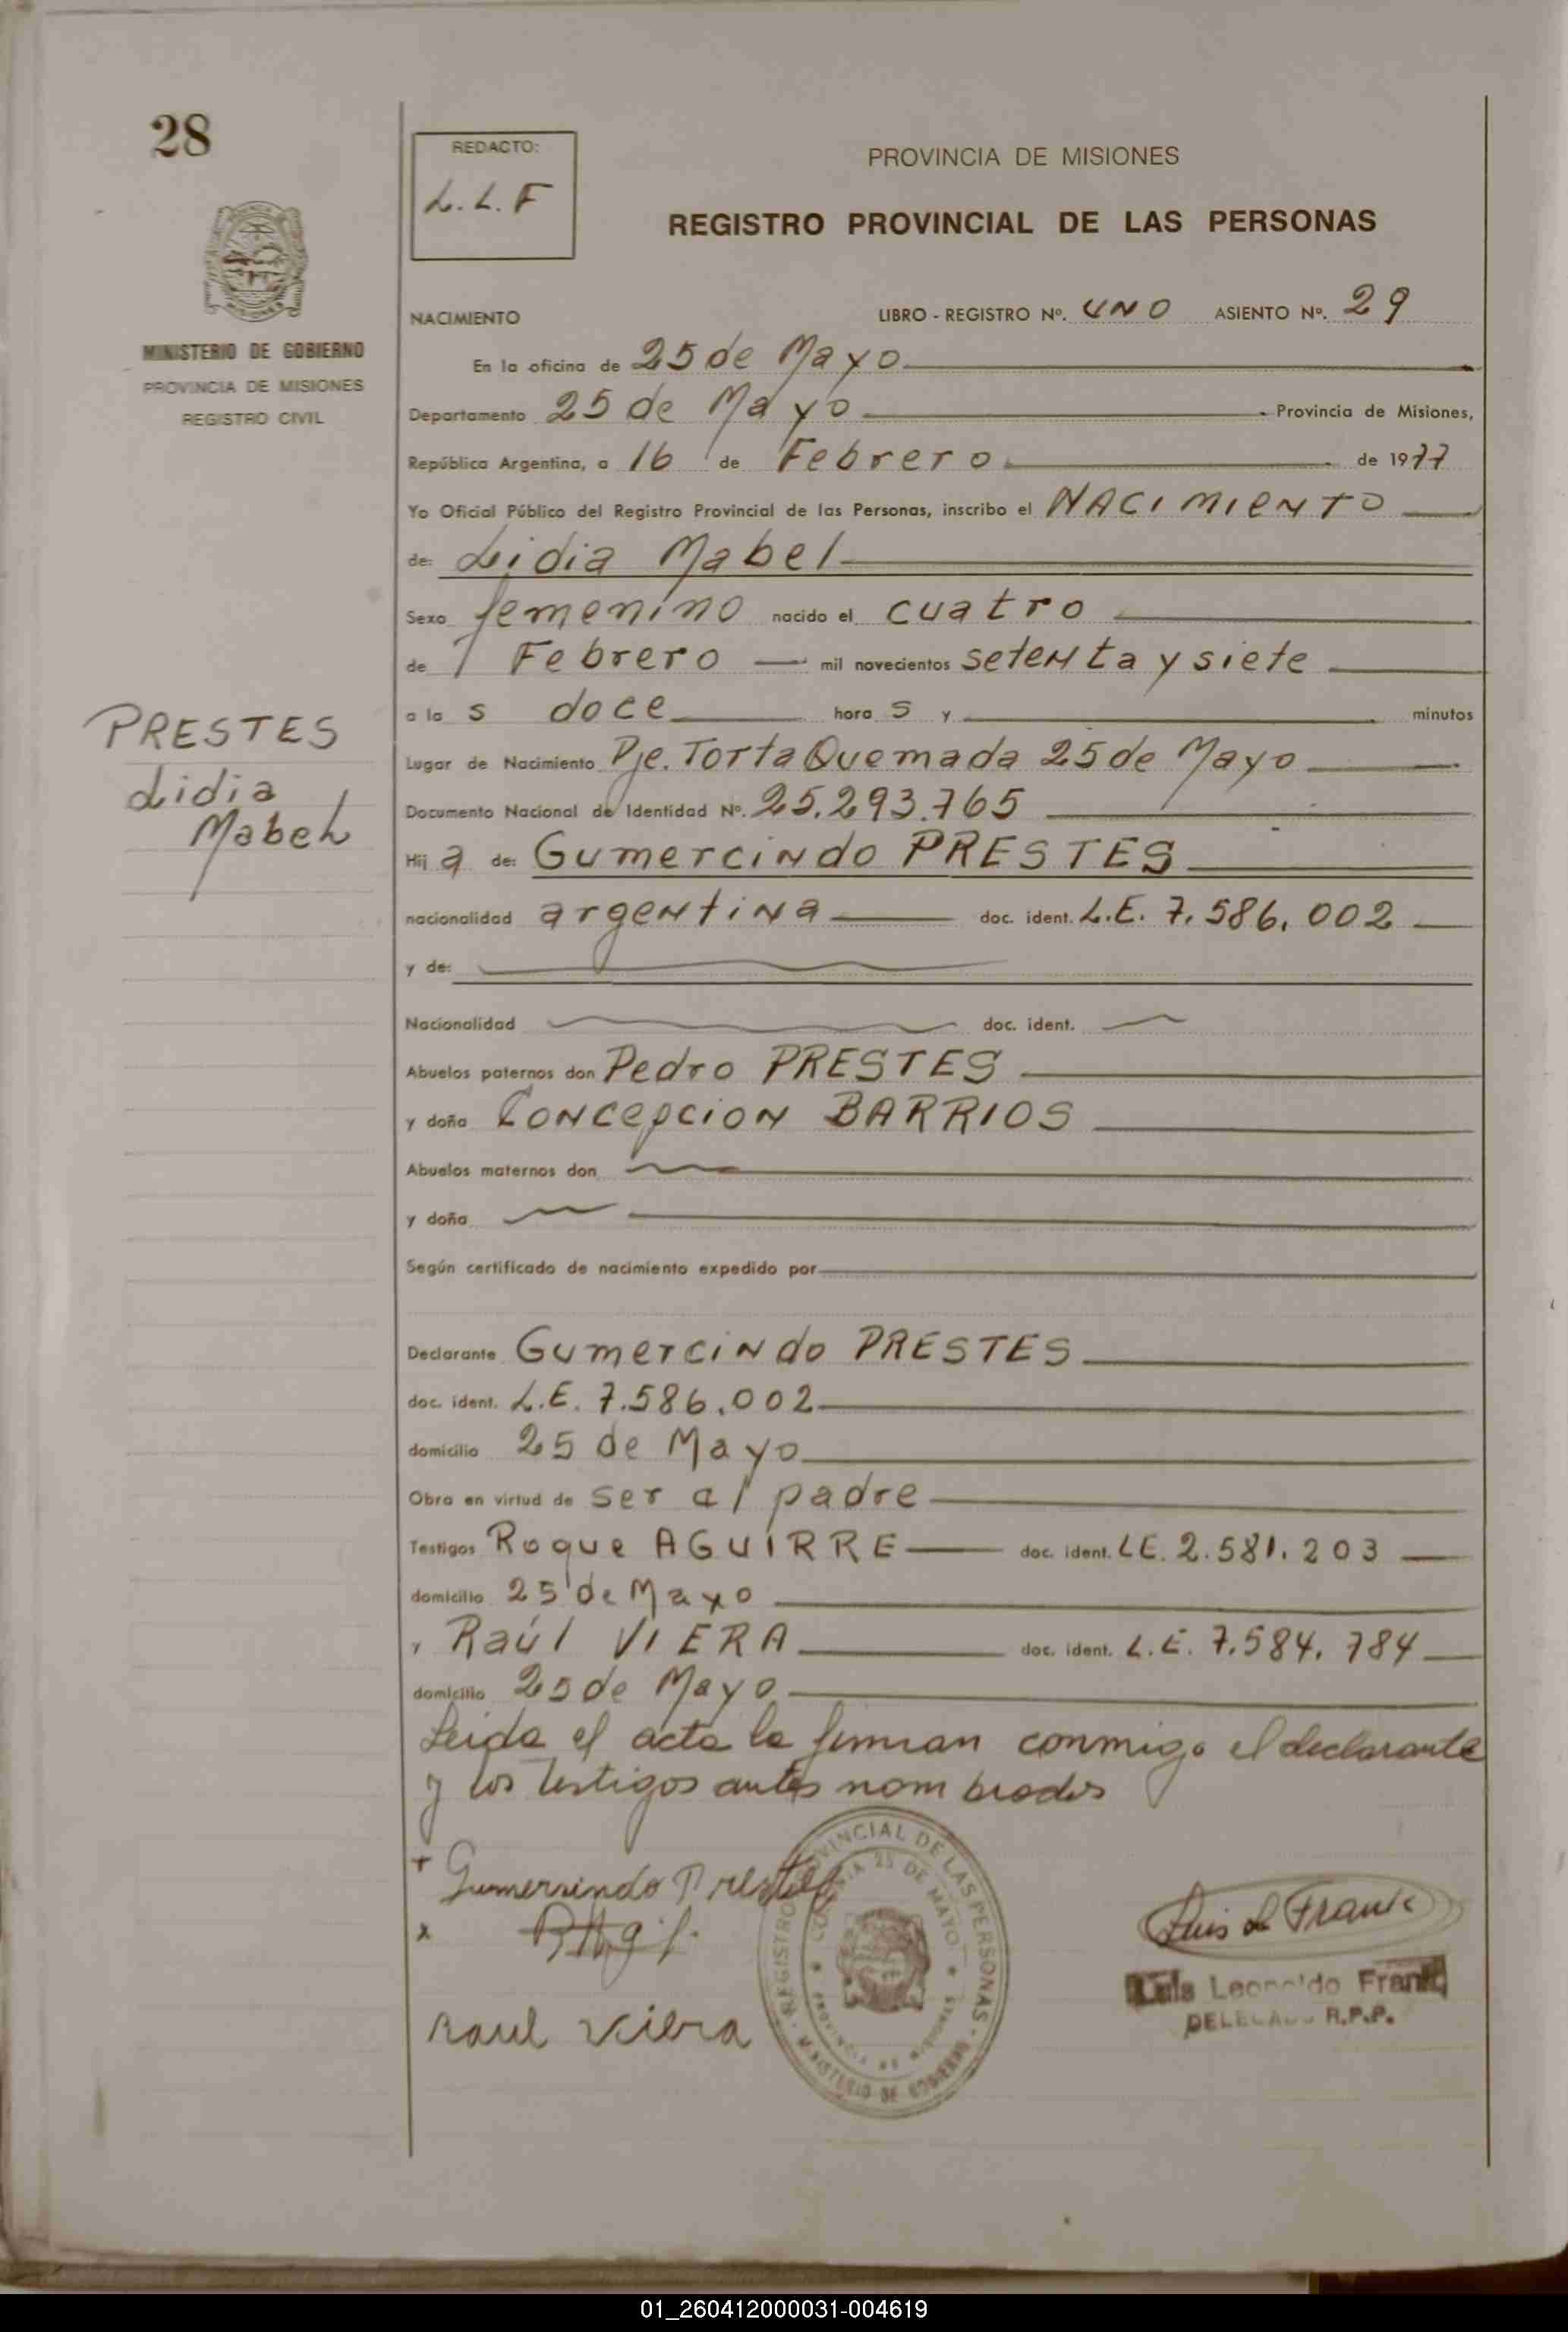 28
REDACTO:
L.L.F
PROVINCIA DE MISIONES
REGISTRO PROVINCIAL DE LAS PERSONAS
MINISTERIO DE GOBIERNO
PROVINCIA DE MISIONES
REGISTRO CIVIL
NACIMIENTO LIBRO - REGISTRO Nº. UNO ASIENTO Nº. 29
En la oficina de 25 de Mayo
Departamento 25 de Mayo Provincia de Misiones,
República Argentina, a 16 de Febrero de 1977
Yo Oficial Público del Registro Provincial de las Personas, inscribo el NACIMIENTO
de: Lidia Mabel
Sexo femenino nacido el cuatro
de Febrero mil novecientos setenta y siete
a la s doce hora s y minutos
PRESTES
Lidia
Mabel
Lugar de Nacimiento Pje. Torta Quemada 25 de Mayo
Documento Nacional de Identidad Nº. 25.293.765
Hij a de: Gumercindo PRESTES
nacionalidad argentina doc. ident. L.E. 7.586.002
y de:
Nacionalidad doc. ident.
Abuelos paternos don Pedro PRESTES
y doña Concepcion BARRIOS
Abuelos maternos don
y doña
Según certificado de nacimiento expedido por
Declarante Gumercindo PRESTES
doc. ident. L.E. 7.586.002
domicilio 25 de Mayo
Obra en virtud de ser al padre
Testigos Roque AGUIRRE doc. ident. LE. 2.581.203
domicilio 25 de Mayo
y Raúl VIERA doc. ident. L.E. 7.584.784
domicilio 25 de Mayo
Leida el acta la firman conmigo el declarante
y los testigos antes nombrados
Gumersindo Prestes
Raul Viera
REGISTRO PROVINCIAL DE LAS PERSONAS
COLONIA 25 DE MAYO
PROVINCIA DE MISIONES
MINISTERIO DE GOBIERNO
Luis L Frank
Luis Leopoldo Frank
DELEGADO R.P.P.
01_260412000031-004619